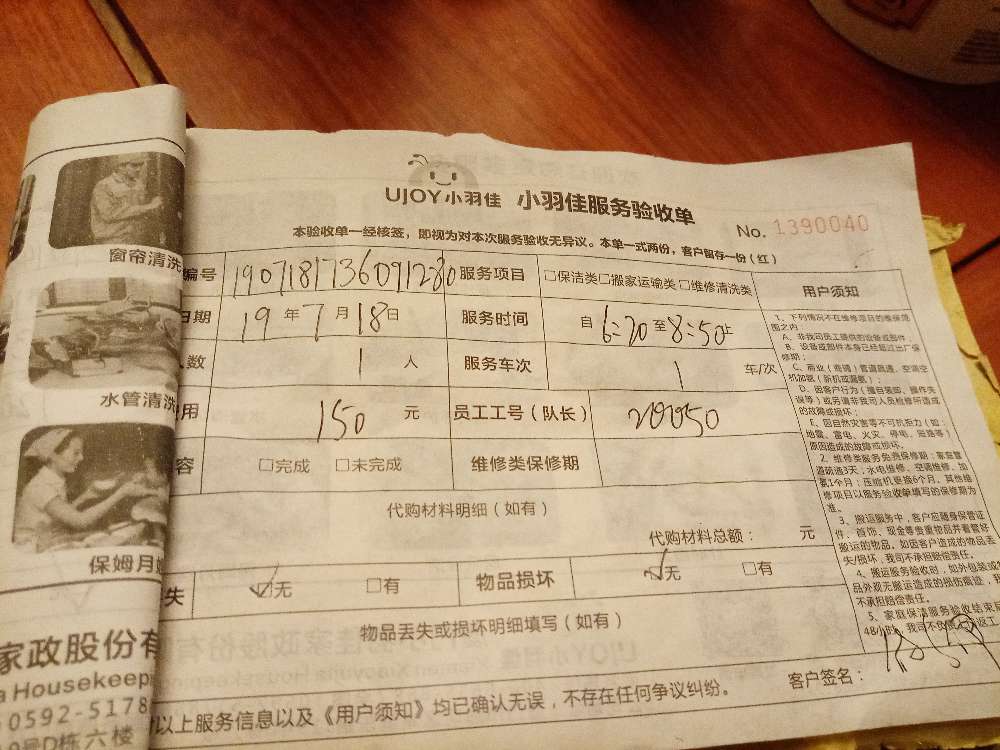 UJOY小羽佳 小羽佳服务验收单
No. 1390040
本验收单一经核签，即视为对本次服务验收无异议。本单一式两份，客户留存一份（红）
编号 1907181736091280 服务项目 □保洁类□搬家运输类□维修清洗类 用户须知
日期 19年7月18日 服务时间 自6:20至8:50止
人数 1人 服务车次 1 车/次
用 150 元 员工工号（队长）
容 □完成 □未完成 维修类保修期
代购材料明细（如有）
代购材料总额： 元
失 ☑无 □有 物品损坏 ☑无 □有
物品丢失或损坏明细填写（如有）
以上服务信息以及《用户须知》均已确认无误，不存在任何争议纠纷。 客户签名：
1、下列情况不在维修项目的维保范
围之内
A、非我司员工提供的设备或部件
B、设备或部件本身已经超过出厂保
修期；
C、商业（商铺）管道疏通，空调空
机加氨（新机或漏氨）；
D、因客户行为（擅自装卸、操作失
误等）或另请非我司人员检修所造成
的故障或损坏；
E、因自然灾害等不可抗拒力（如：
地震、雷电、火灾、停电、短路等）
原因造成的故障或损坏。
2、维修类服务免费保修期：家庭管
道疏通3天，水电维修、空调维修、加
氨1个月；压缩机更换6个月，其他维
修项目以服务验收单填写的保修期为
准。
3、搬运服务中，客户应随身保管证
件、首饰、现金等贵重物品并看管好
搬运的物品。如因客户造成的物品丢
失/损坏，我司不承担赔偿责任。
4、搬运服务验收时，如外包装或物
品外观无搬运造成的损伤痕迹，我
不承担赔偿责任。
5、家庭保洁服务验收结束后
48小时，我司不负责
窗帘清洗
水管清洗
保姆月嫂
家政股份有
a Housekeepi
0592-5178
D栋六楼